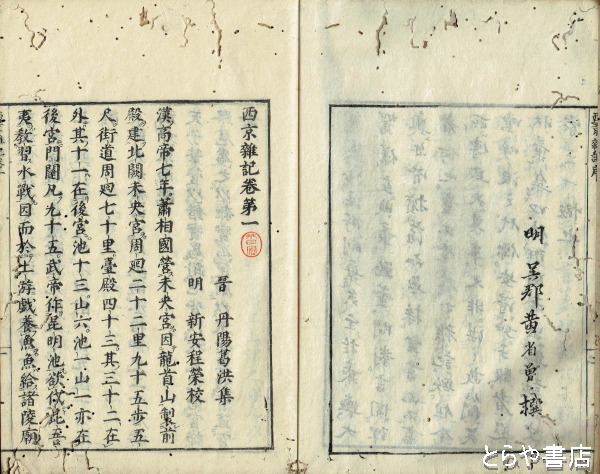 明 吴郡黄省曽 撰
西京雜記卷第一
晉 丹陽葛洪集
明 新安程榮校
漢高帝七年蕭相國營未央宮因龍首山製前
殿建北闕未央宮周廻二十二里九十五步五
尺街道周廻七十里臺殿四十三其三十二在
外其十一在後宮池十三山六池一山一亦在
後宮門闥凡九十五武帝作昆明池欲伐昆吾
夷教習水戰因而於上游戲養魚魚給諸陵廟
とらや書店